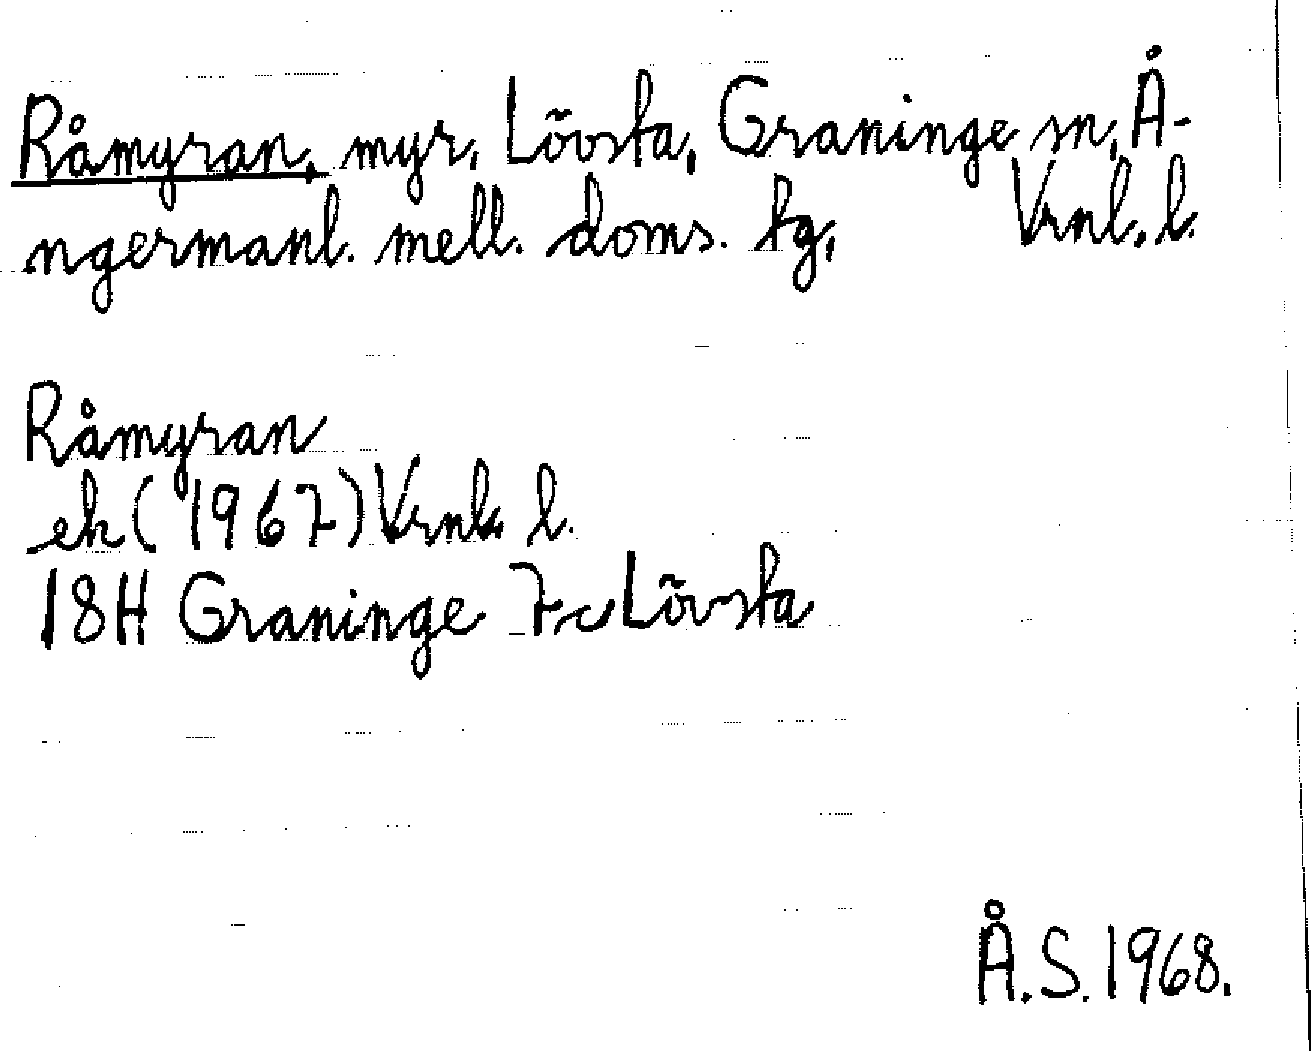 Råmyran, myr, Lövsta, Graninge sn, Å-
ngermanl. mell. doms. tg, Vrnl. l.
Råmyran
ek (1967) Vrnl. l.
18H Graninge 7c Lövsta
Å.S. 1968.